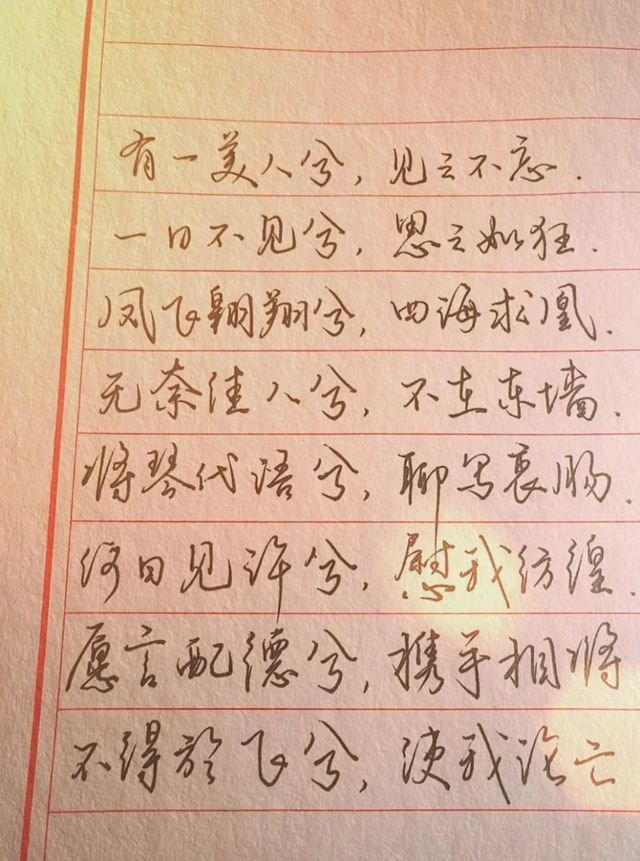 有一美人兮，见之不忘．
一日不见兮，思之如狂．
凤飞翱翔兮，四海求凰．
无奈佳人兮，不在东墙．
将琴代语兮，聊写衷肠．
何日见许兮，慰我彷徨．
愿言配德兮，携手相将
不得於飞兮，使我沦亡